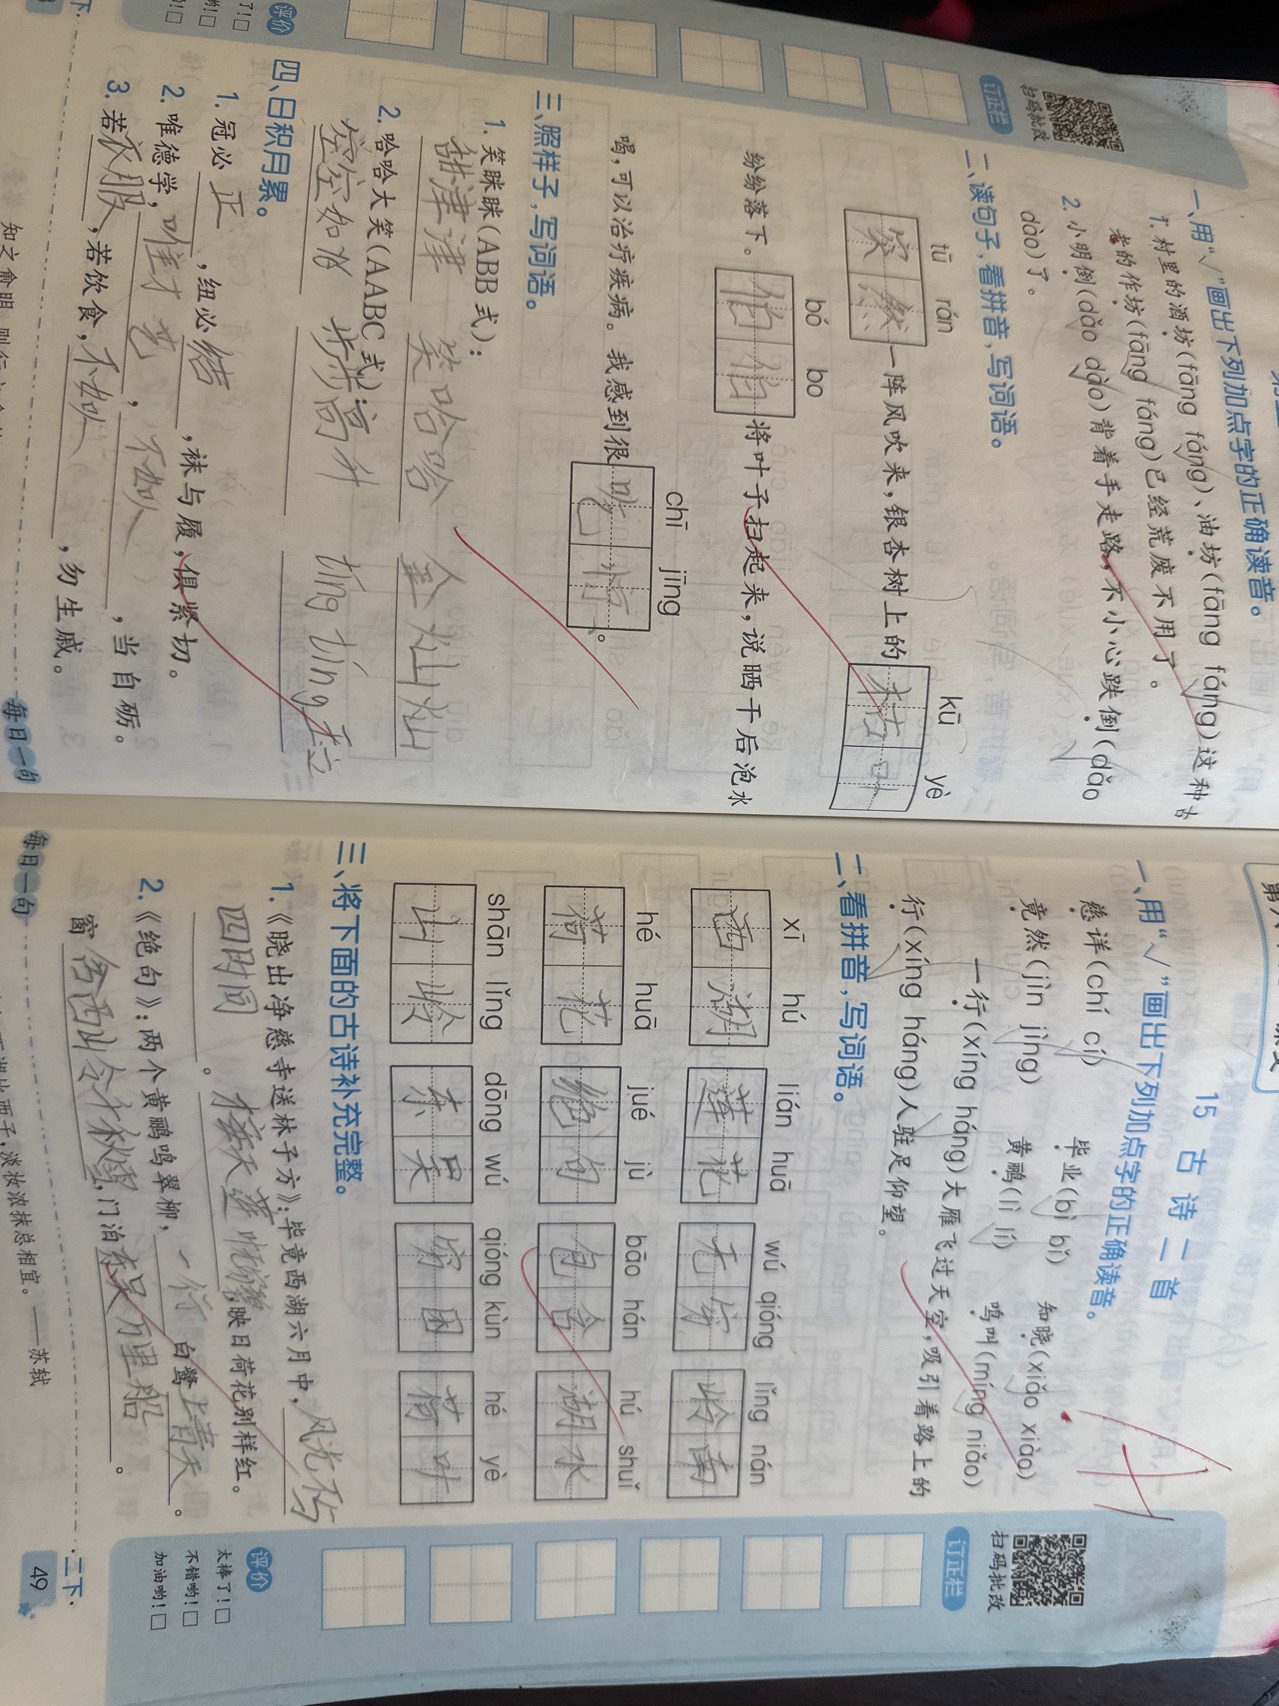 一、用“√”画出下列加点字的正确读音。
1. 村里的酒坊(fāng fáng)、油坊(fāng fáng)这种古
老的作坊(fāng fáng)已经荒废不用了。
2. 小明倒(dǎo dào)背着手走路,不小心跌倒(dǎo
dào)了。
二、读句子,看拼音,写词语。
tū rán kū yè
突然一阵风吹来,银杏树上的枯叶
bó bo
纷纷落下。伯伯将叶子扫起来,说晒干后泡水
chī jīng
喝,可以治疗疾病。我感到很吃惊。
三、照样子,写词语。
1. 笑眯眯(ABB式):
甜津津 笑哈哈 金灿灿
2. 哈哈大笑(AABC式):
空空如也 步步高升 tíng tíng 玉立
四、日积月累。
1. 冠必正,纽必结,袜与履,俱紧切。
2. 唯德学,唯才艺,不如人,当自砺。
3. 若衣服,若饮食,不如人,勿生戚。
每日一句
评价
订正栏
扫码批改
15 古诗二首
一、用“√”画出下列加点字的正确读音。
慈祥(chí cí) 毕业(bì bǐ) 知晓(xiǎo xiào)
竟然(jìn jìng) 黄鹂(lì lí) 鸣叫(míng niǎo)
一行(xíng háng)大雁飞过天空,吸引着路上的
行(xíng háng)人驻足仰望。
二、看拼音,写词语。
xī hú lián huā wú qióng lǐng nán
西湖 莲花 无穷 岭南
hé huā jué jù bāo hán hú shuǐ
荷花 绝句 包含 湖水
shān lǐng dōng wú qióng kùn hé yè
山岭 东吴 穷困 荷叶
三、将下面的古诗补充完整。
1.《晓出净慈寺送林子方》:毕竟西湖六月中,风光不与
四时同。接天莲叶无穷碧,映日荷花别样红。
2.《绝句》:两个黄鹂鸣翠柳,一行白鹭上青天。
窗含西岭千秋雪,门泊东吴万里船。
每日一句
淡妆浓抹总相宜。——苏轼
订正栏
扫码批改
评价
太棒了!□
不错哟!□
加油哟!□
二下
49